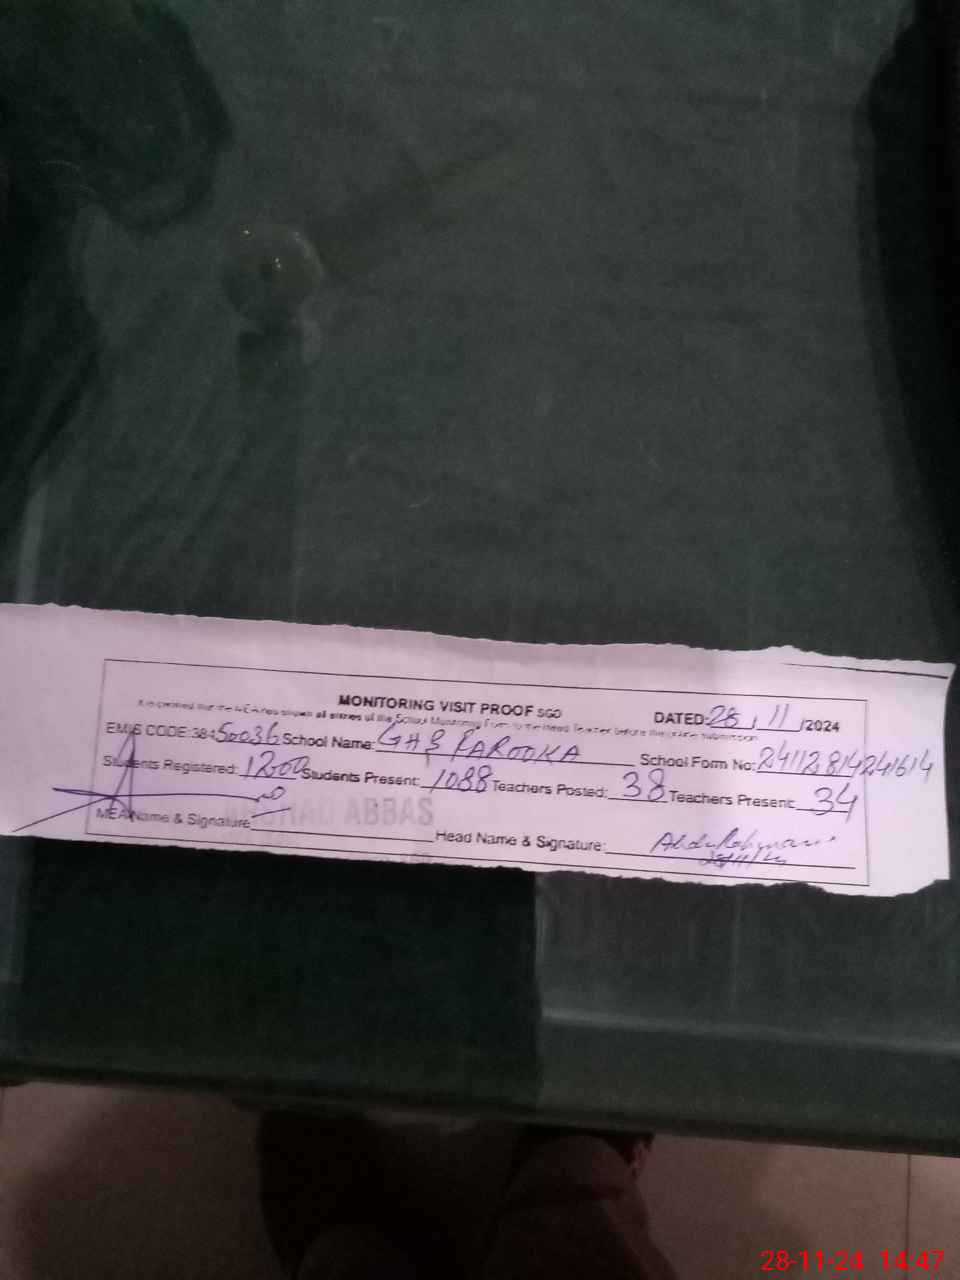 MONITORING VISIT PROOF SGD
DATED: 28/11/2024
It is certified that the MEA has shown all entries of the School Monitoring Form to the Head Teacher before the online submission
EMIS CODE: 38450036 School Name: GHS FAROOKA School Form No: 24112814241614
Students Registered: 1200 Students Present: 1088 Teachers Posted: 38 Teachers Present: 34
ABBAS
MEA Name & Signature Head Name & Signature:
28-11-24 14:47